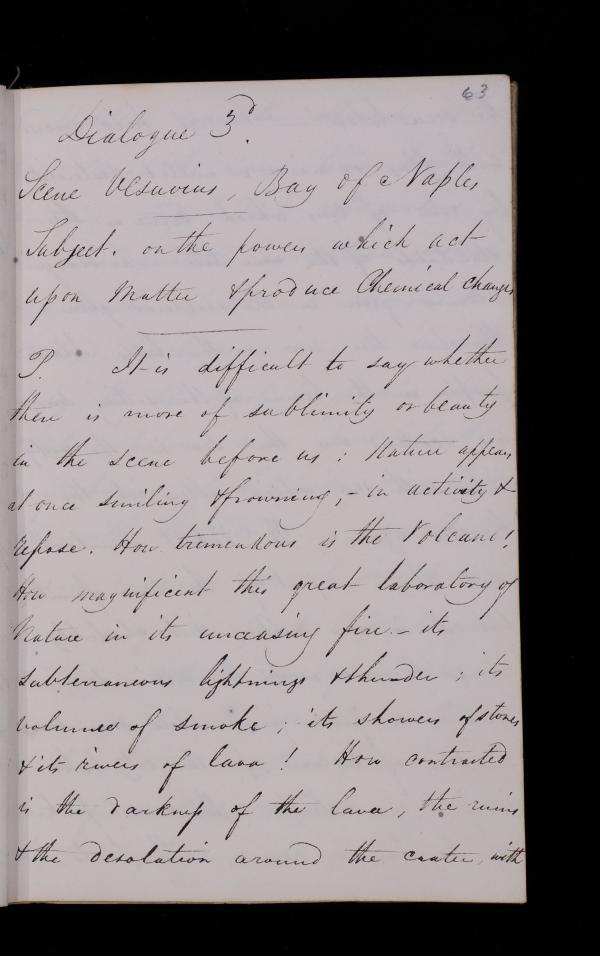 63
Dialogue 3d.
Scene Vesuvius, Bay of Naples
Subject. on the powers which act
upon Matter & produce Chemical changes
P. It is difficult to say whether
there is more of sublimity or beauty
in the scene before us : Nature appears
at once smiling & frowning, – in activity &
repose. How tremendous is the Volcano!
How magnificent this great laboratory of
Nature in its unceasing fire – its
subterraneous lightnings & thunder ; its
volumes of smoke ; its showers of stones
& its rivers of lava ! How contrasted
is the darkness of the lava, the ruins
& the desolation around the crater, with